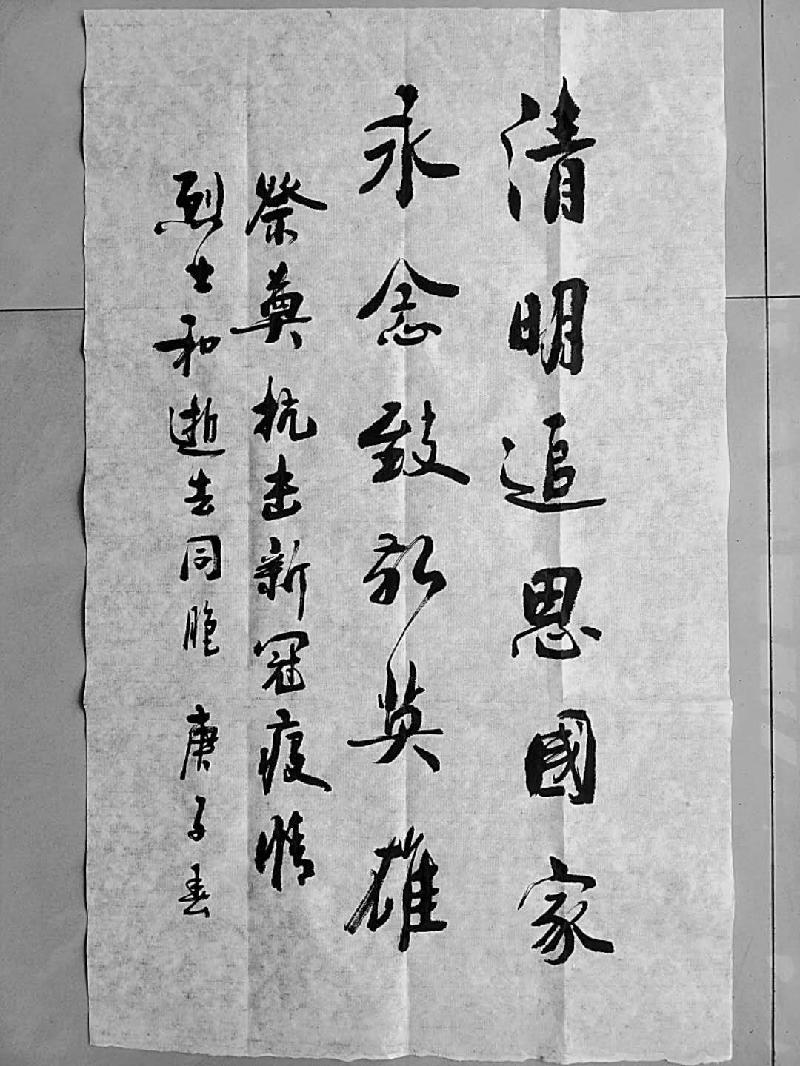 清明追思國家
永念致敬英雄
祭奠抗击新冠疫情
烈士和逝去同胞 庚子春